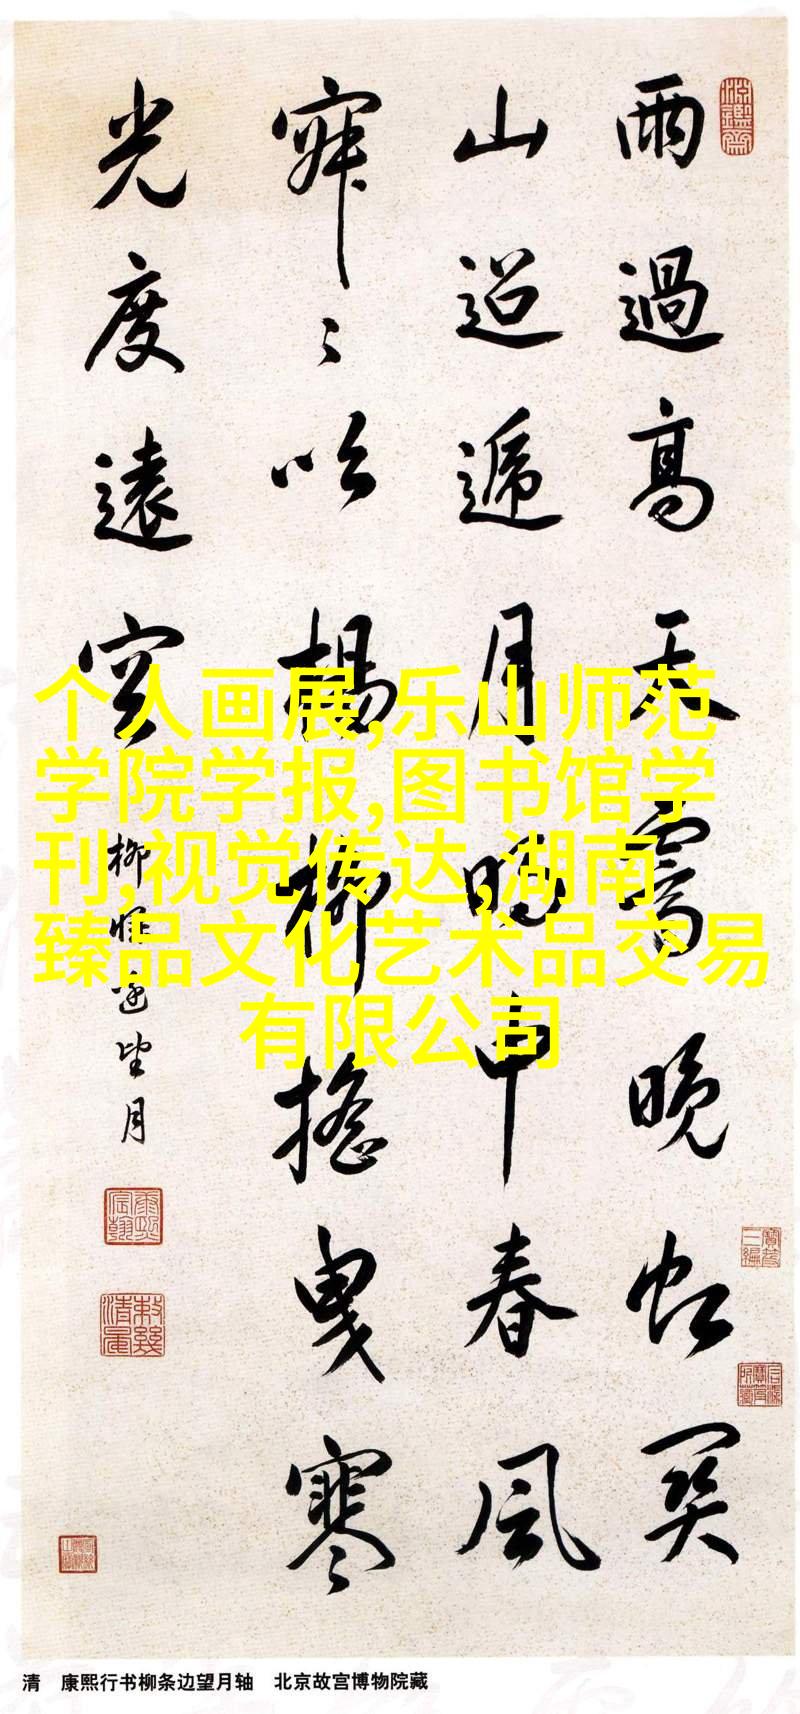 雨過高天霽晚虹关
山迢遞月明中春風
寂々吹楊柳摇曳寒
光度遠空
柳條邊望月
个人画展,乐山师范
学院学报,图书馆学
刊,视觉传达,湖南
臻品文化艺术品交易
有限公司
清 康熙行书柳条边望月轴 北京故宫博物院藏